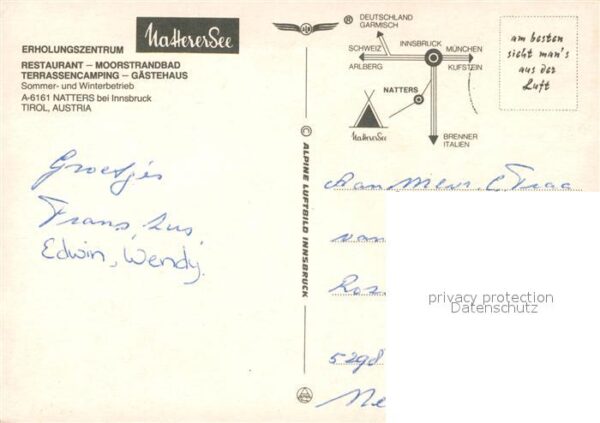 ERHOLUNGSZENTRUM
NattererSee
RESTAURANT – MOORSTRANDBAD
TERRASSENCAMPING – GÄSTEHAUS
Sommer- und Winterbetrieb
A-6161 NATTERS bei Innsbruck
TIROL, AUSTRIA
Groetjes
Frans, Lus,
Edwin, Wendy.
®
ALPINE LUFTBILD INNSBRUCK
DEUTSCHLAND
GARMISCH
SCHWEIZ
INNSBRUCK
MÜNCHEN
ARLBERG
KUFSTEIN
NATTERS
NattererSee
BRENNER
ITALIEN
am besten
sieht man's
aus der
Luft
Aan Mevr. C.
van
5298
Ne
privacy protection
Datenschutz